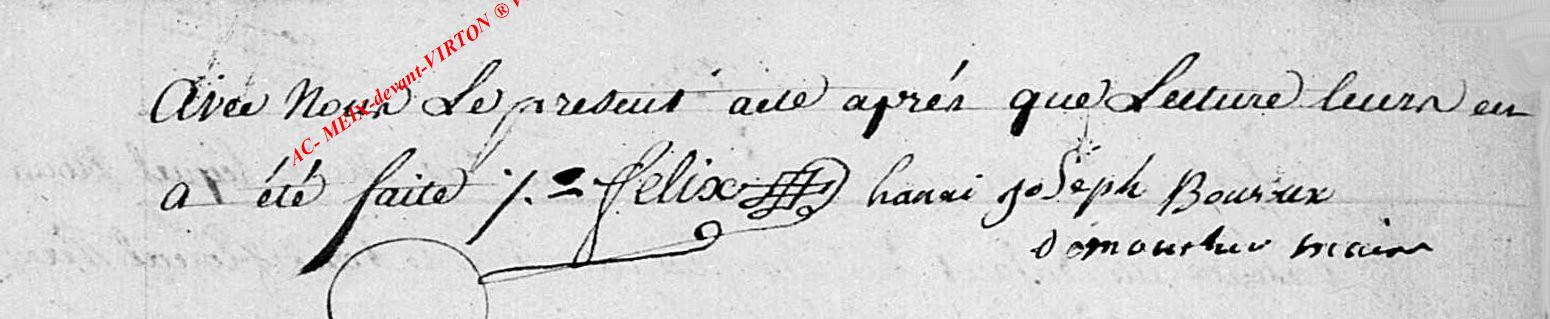 AC- MEIX-devant-VIRTON ®
avec nous Le present acte après que Lecture leurs en
a été faite ·/. = felix hanri joseph Boureux
maire